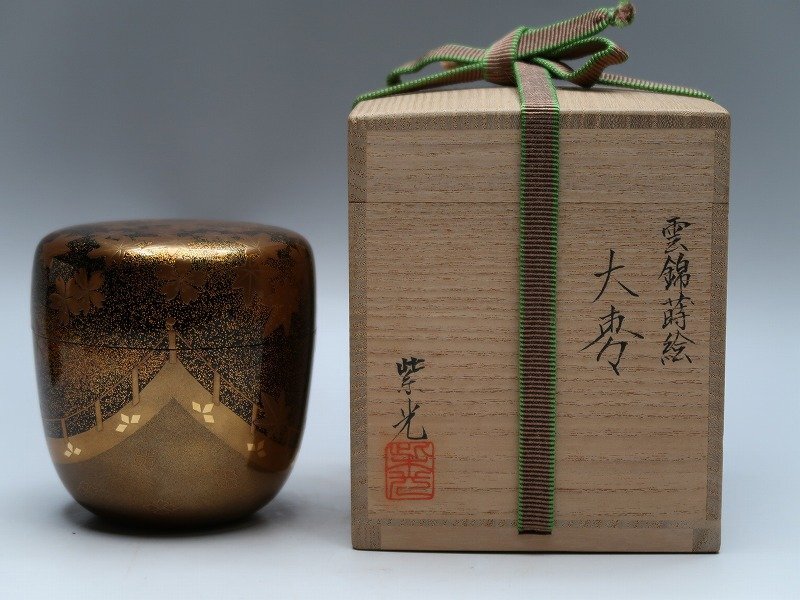 雲錦蒔絵
大棗
紫光
紫光